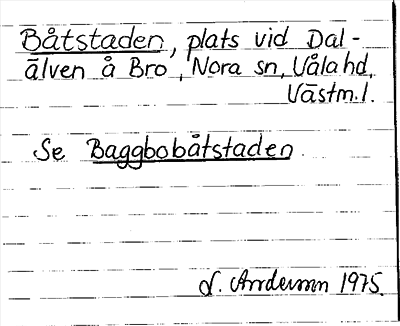 Båtstaden, plats vid Dal-
älven å Bro, Nora sn, Våla hd,
Västm.l.
Se Baggbobåtstaden.
1975.